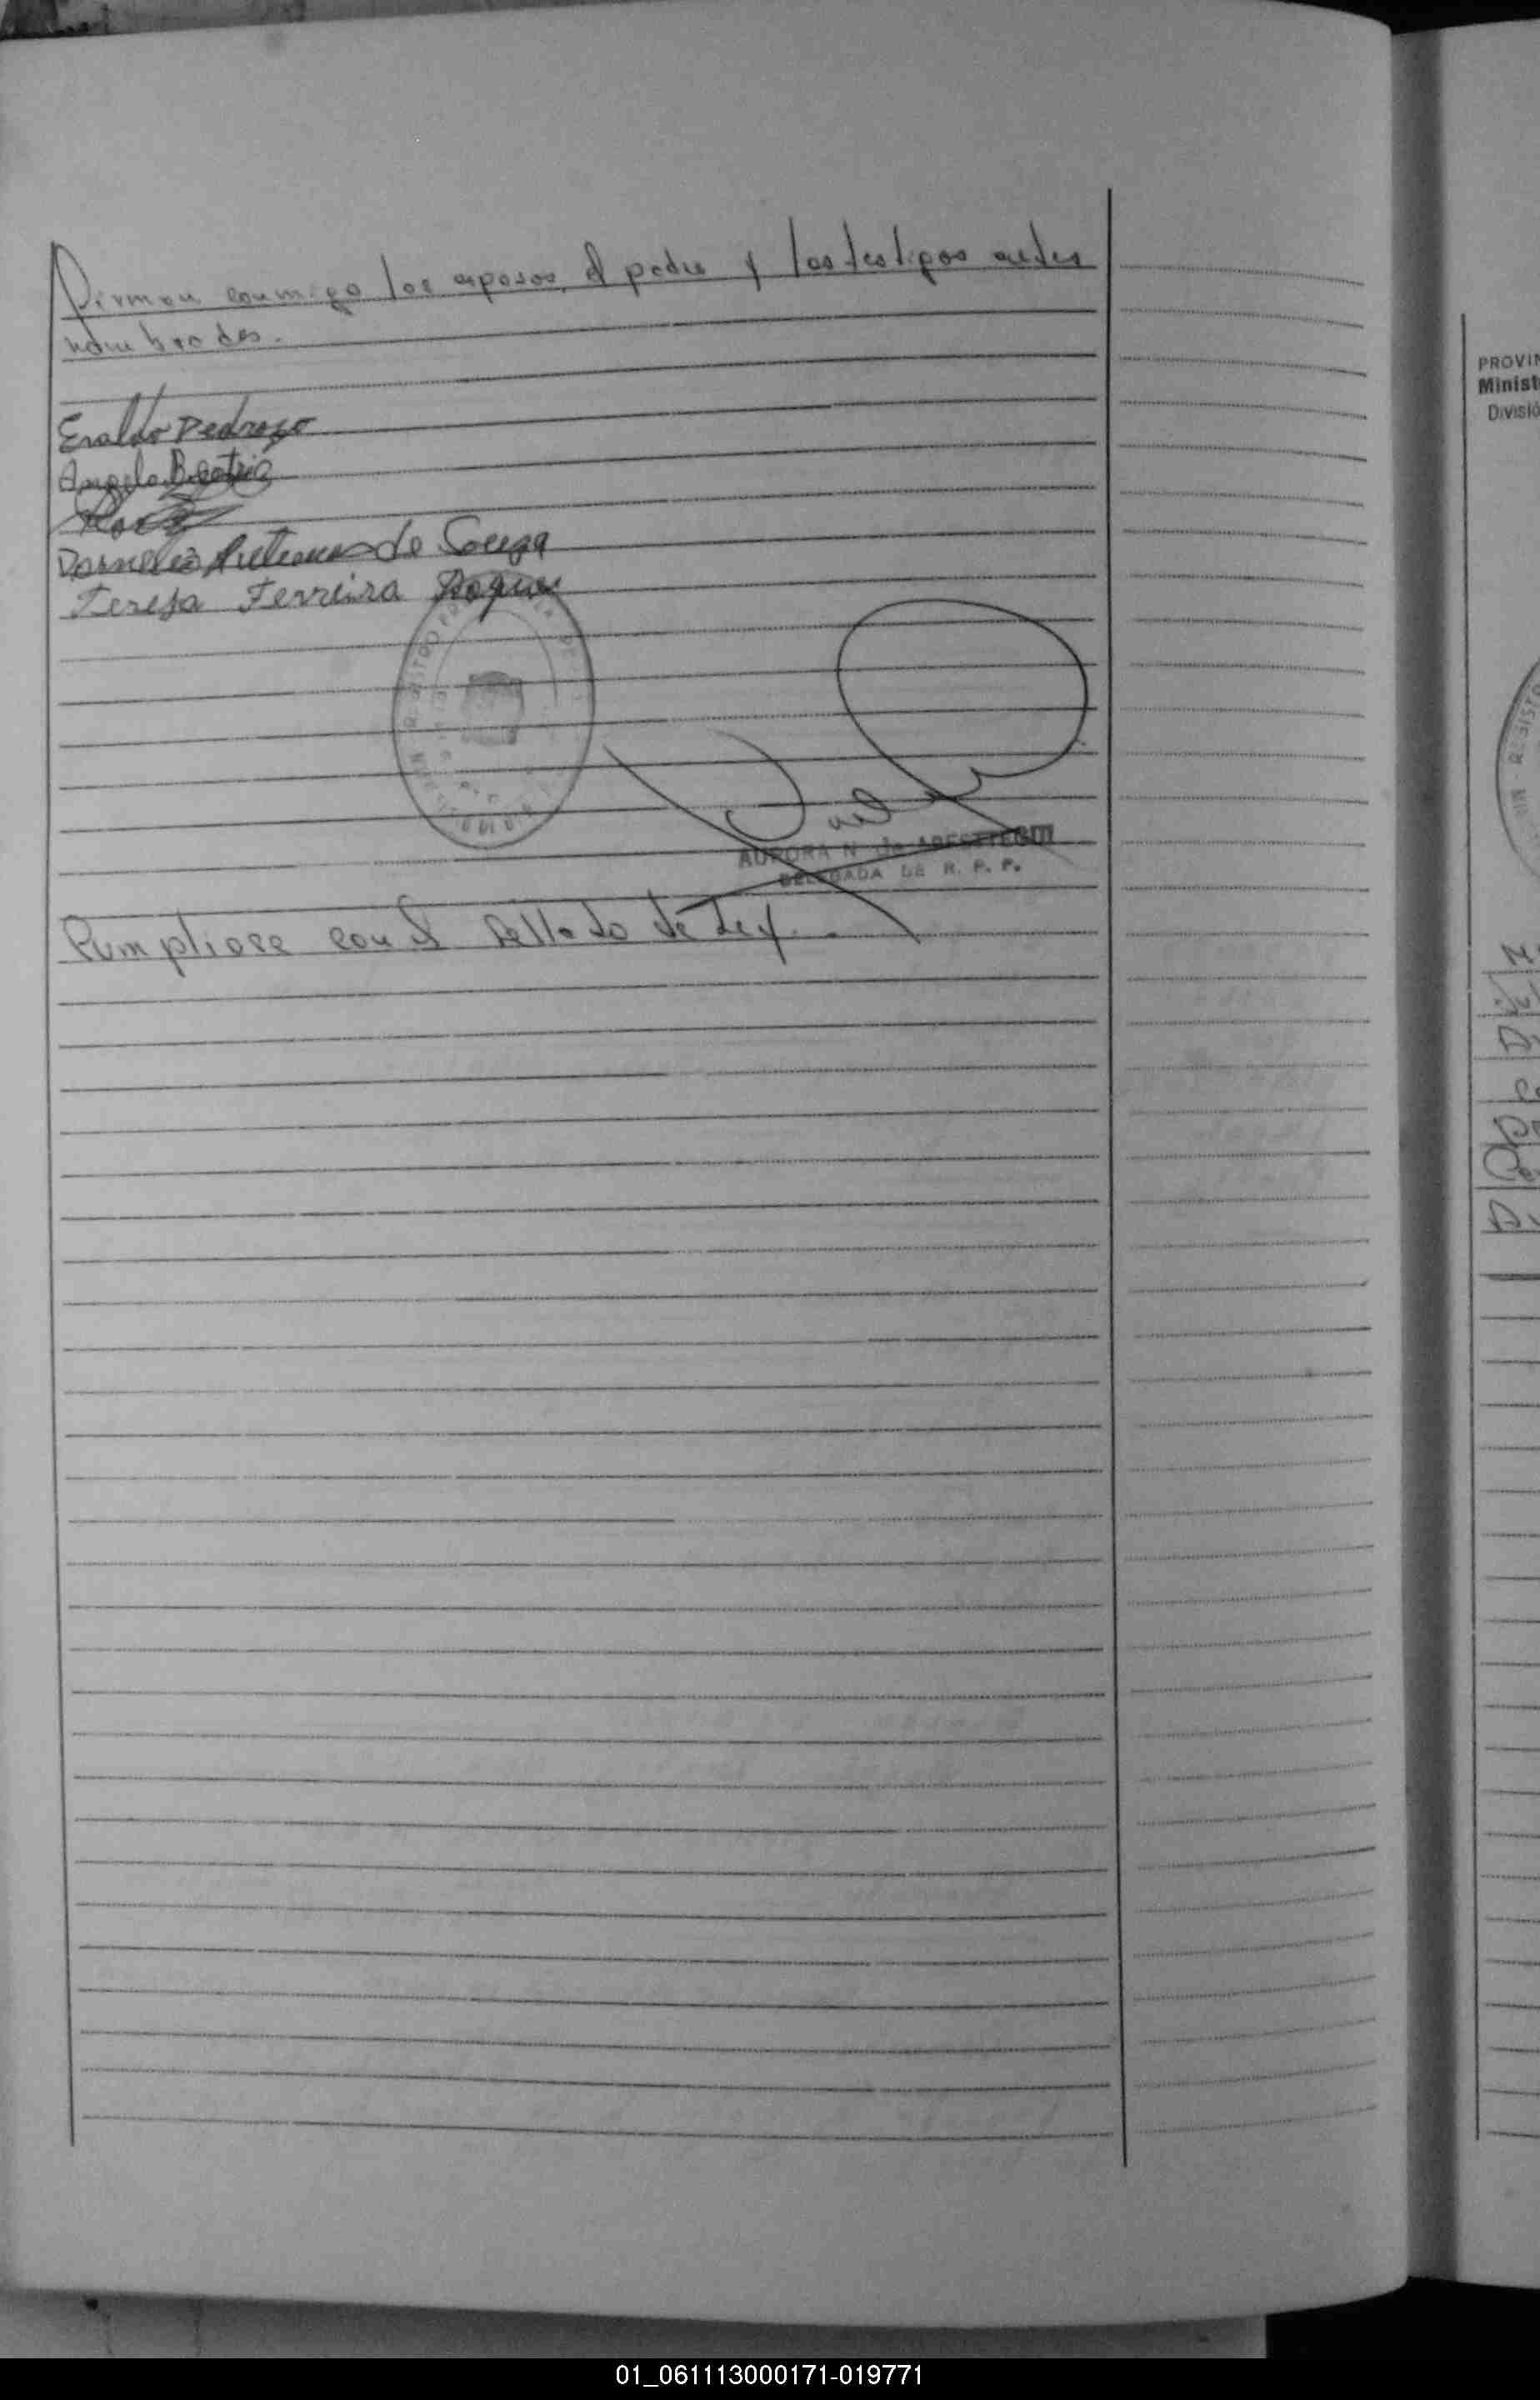 Firman conmigo los esposos, el padre y los testigos antes
nombrados.
Eraldo Pedrozo
Angela Beatriz
Dornelis de Souza
Teresa Ferreira Roque
AURORA N de
DELEGADA DE R. P. P.
Cumpliose con el sellado de Ley.
PROVIN
Minist
Divisió
01_061113000171-019771